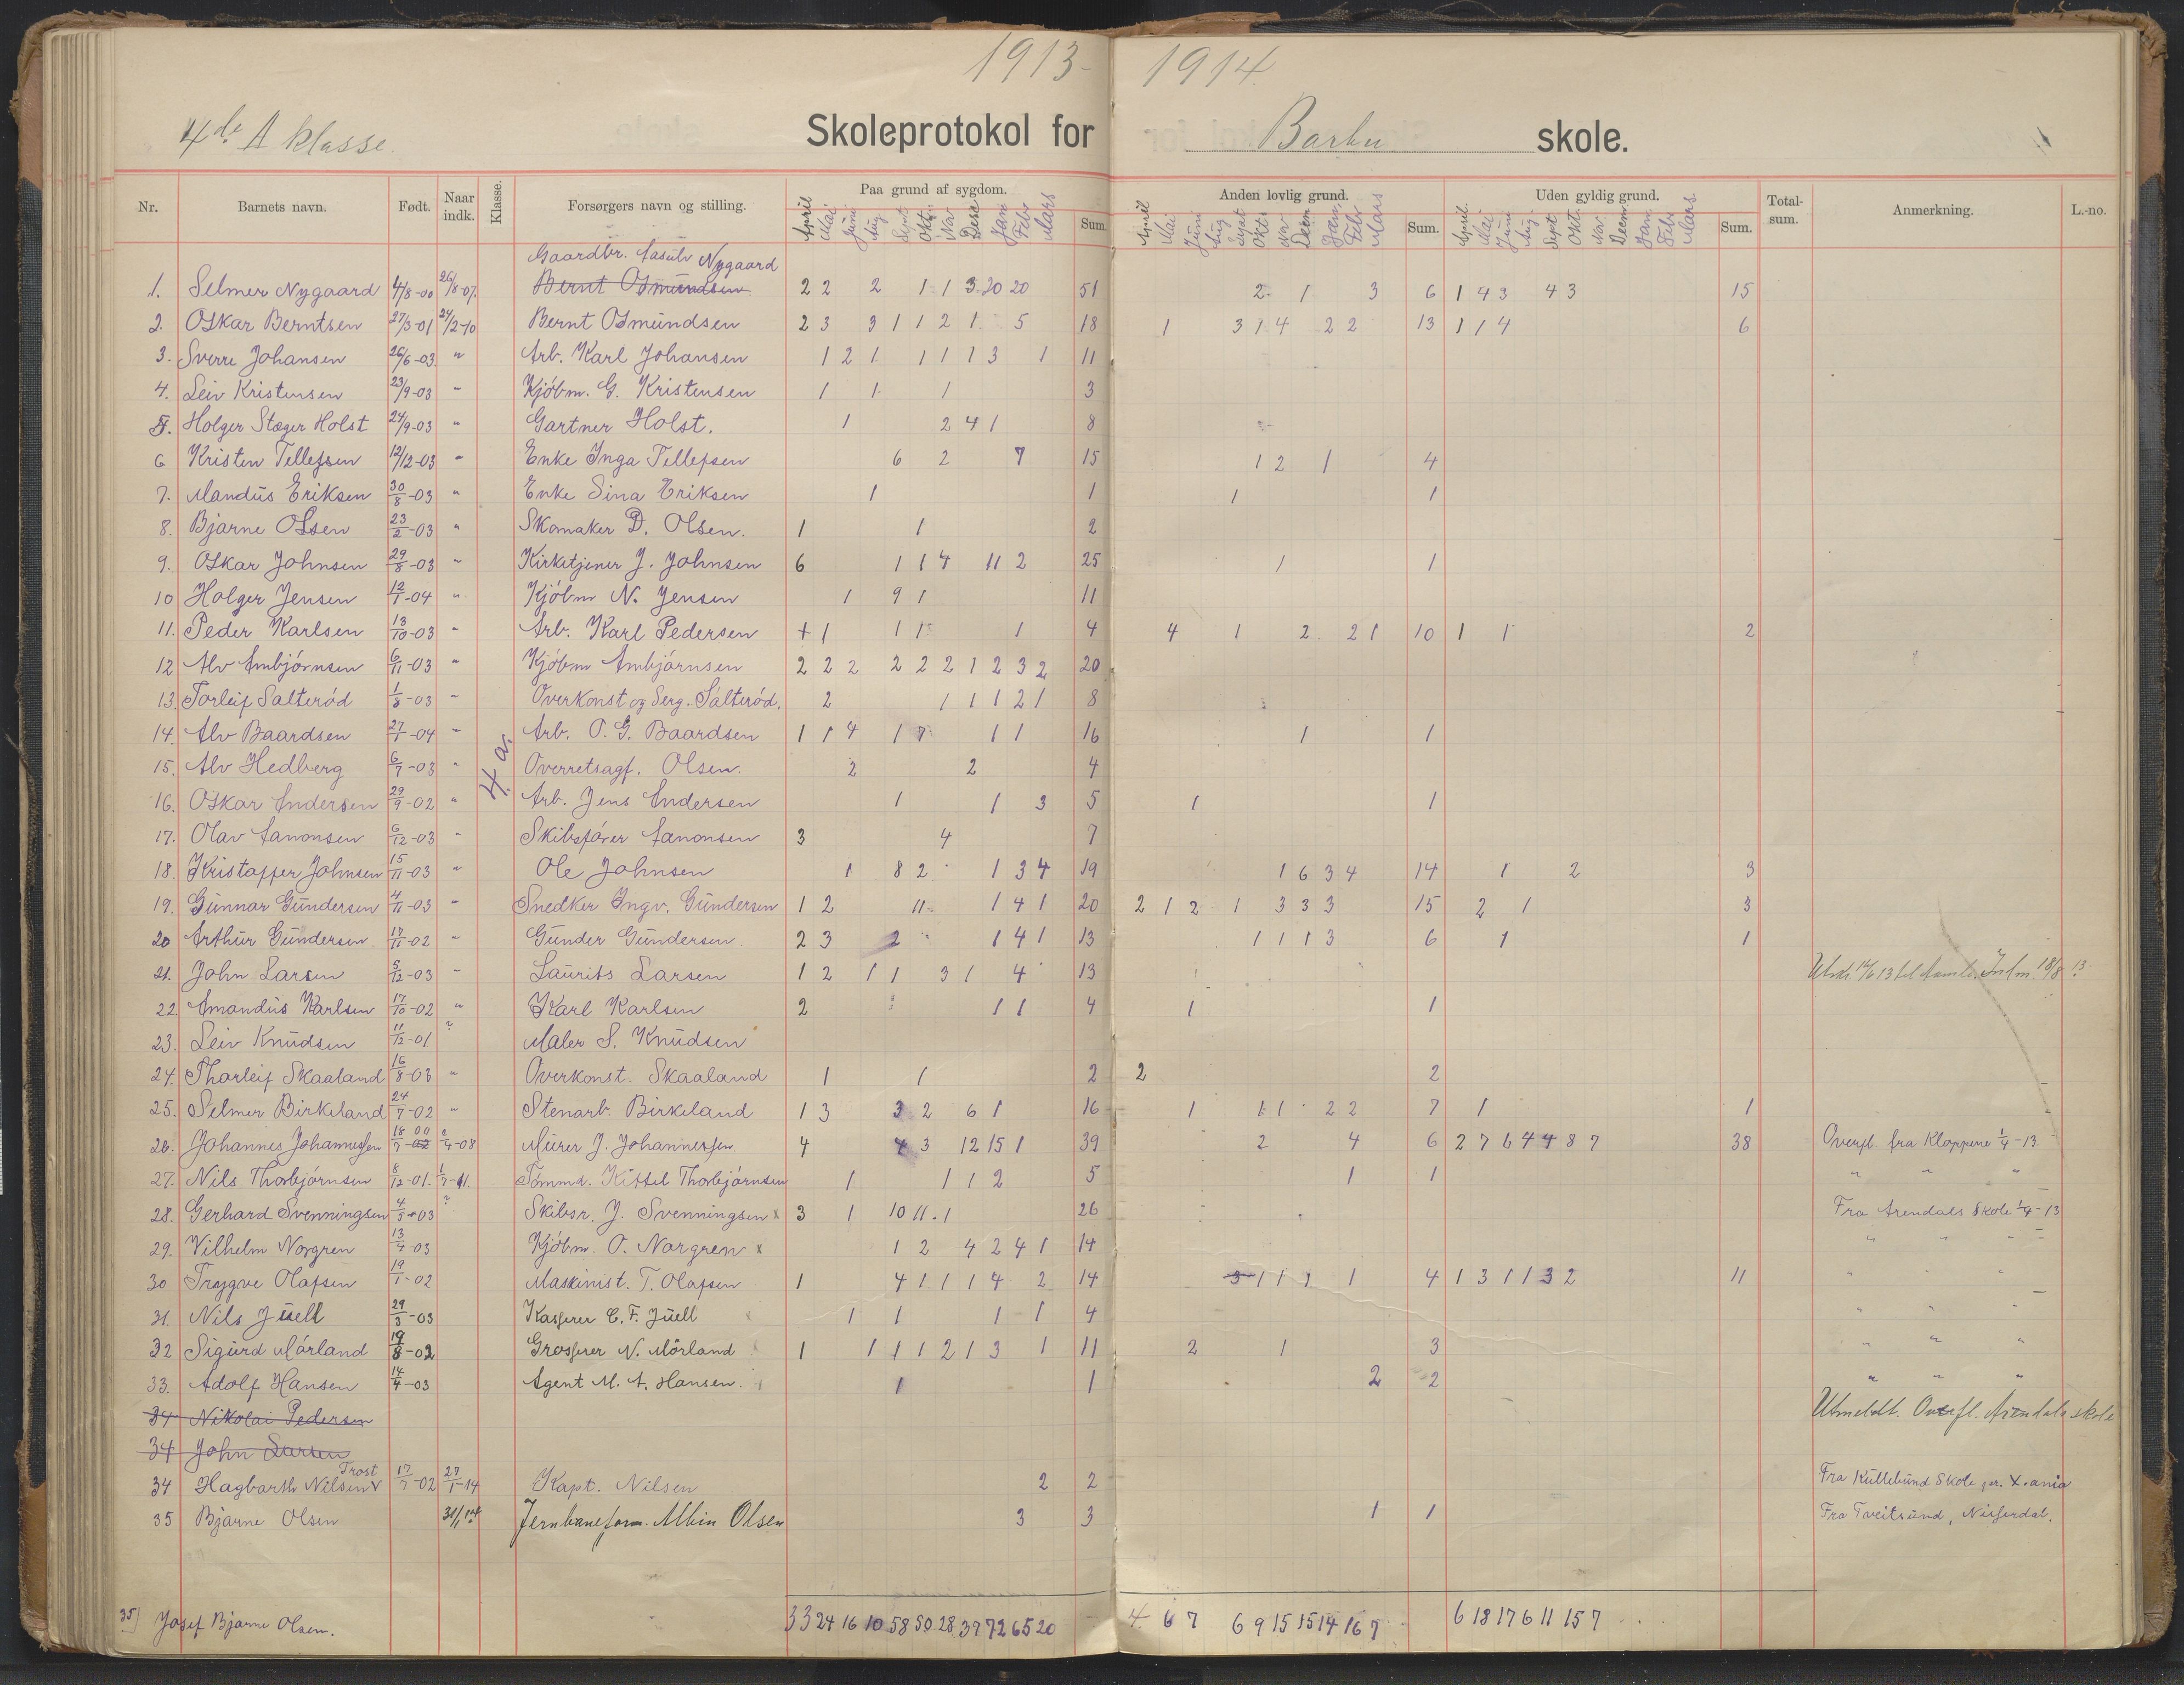 1913- 1914
4de A klasse. Skoleprotokol for Barbu skole.
Nr. Barnets navn. Født. Naar indk. Klasse. Forsørgers navn og stilling. Paa grund af sygdom. Anden lovlig grund. Uden gyldig grund. Total-sum. Anmerkning. L.-no.
April Mai Juni Aug. Sept Okt. Nov Dese Jan Feb Mars Sum. April Mai Juni Aug Sept Okt. Nov Desm Jan. Feb Mars Sum. April. Mai Juni Aug. Sept Okt. Nov Desm Jan. Feb Mars. Sum.
Gaardbr. Aasulv Nygaard
1. Selmer Nygaard 4/8-00 26/8-07. Bernt Osmundsen 2 2 2 1 1 3 20 20 51 2 1 3 6 1 4 3 4 3 15
2. Oskar Berntsen 27/3-01 24/2-10 Bernt Osmundsen 2 3 3 1 1 2 1 5 18 1 3 1 4 2 2 13 1 1 4 6
3. Sverre Johansen 26/6-03. " Arb. Karl Johansen 1 2 1 1 1 1 3 1 11
4. Leiv Kristensen 23/9-03 " Kjöbm. G. Kristensen 1 1 1 3
5. Holger Stæger Holst 24/9-03 " Gartner Holst. 1 2 4 1 8
6 Kristen Tellefsen 12/12-03 " Enke Inga Tellefsen 6 2 7 15 1 2 1 4
7. Mandus Eriksen 30/8-03 " Enke Sina Eriksen 1 1 1 1
8. Bjarne Olsen 23/2-03 " Skomaker D. Olsen. 1 1 2
9. Oskar Johnsen 29/8-03 " Kirketjener J. Johnsen 6 1 1 4 11 2 25 1 1
10 Holger Jensen 12/1-04 " Kjöbm N. Jensen 1 9 1 11
11. Peder Karlsen 13/10-03 " Arb. Karl Pedersen + 1 1 1 1 4 4 1 2 2 1 10 1 1 2
12 Alv Ambjörnsen 6/11-03 " Kjöbm Ambjörnsen 2 2 2 2 2 2 1 2 3 2 20
13. Torleif Salteröd 1/8-03 " Overkonst og Serg. Salteröd. 2 1 1 1 2 1 8
14. Alv Baardsen 27/1-04 " Arb. O. G. Baardsen 1 1 4 1 7 1 1 16 1 1
15. Alv Hedberg 6/7-03 " Overretsagf. Olsen. 2 2 4
4. a.
16. Oskar Andersen 29/9-02 " Arb. Jens Andersen 1 1 3 5 1 1
17. Olav Aanonsen 6/12-03 " Skibsförer Aanonsen 3 4 7
18. Kristoffer Johnsen 15/11-03 " Ole Johnsen 1 8 2 1 3 4 19 1 6 3 4 14 1 2 3
19. Gunnar Gundersen 4/11-03 " Snedker Ingv. Gundersen 1 2 11 1 4 1 20 2 1 2 1 3 3 3 15 2 1 3
20 Arthur Gundersen 17/11-02 " Gunder Gundersen 2 3 2 1 4 1 13 1 1 1 3 6 1 1
21. John Larsen 5/12-03 " Laurits Larsen 1 2 1 1 3 1 4 13 18/8 13.
22. Amandus Karlsen 17/10-02 " Karl Karlsen 2 1 1 4 1 1
23. Leiv Knudsen 11/12-01 ? Maler S. Knudsen
24. Tharleif Skaaland 16/8-03 " Overkonst. Skaaland 1 1 2 2 2
25. Selmer Birkeland 24/7-02 " Stenarb. Birkeland 1 3 3 2 6 1 16 1 1 1 2 2 7 1 1
26. Johannes Johannessen 18/7-02 00 2/4-08 Murer J. Johannessen. 4 4 3 12 15 1 39 2 4 6 2 7 6 4 4 8 7 38 Overfl. fra Kloppene 1/4-13.
27. Nils Thorbjörnsen 8/12-01. 1/7-11. Tömmd. Kittel Thorbjörnsen 1 1 1 2 5 1 1 " " "
28. Gerhard Svenningsen 4/5-03 ? Skibsr. J. Svenningsen x 3 1 10 11 1 26 Fra Arendals skole 1/4-13
29. Vilhelm Norgren 13/4-03 Kjöbm. O. Norgren x 1 2 4 2 4 1 14 " " "
30 Trygve Olafsen 19/1-02 Maskinist. T. Olafsen 1 4 1 1 1 4 2 14 3 1 1 1 1 4 1 3 1 1 3 2 11 " " "
31. Nils Juell 29/3-03 Kasserer C. F. Juell 1 1 1 1 4 " " "
32 Sigurd Mörland 19/8-02 Grosserer N. Mörland 1 1 1 1 2 1 3 1 11 2 1 3 " " "
33. Adolf Hansen 14/4-03 Agent M. A. Hansen. 1 1 2 2 " " "
34 Nikolai Pedersen Utmeldt. Overfl. Arendals skole
34 John Larsen
34 Hagbarth Trost Nilsen 17/7-02 27/1-14 Kapt. Nilsen 2 2 Fra Kullebund Skole pr. X.ania
35 Bjarne Olsen 31/1 14 Jernbaneform. Albin Olsen 3 3 1 1 Fra Tveitsund, Nisserdal.
35) Josef Bjarne Olsen. 33 24 16 10 58 50 28 37 72 65 20 4. 6 7 6 9 15 15 14 16 7 6 18 17 6 11 15 7